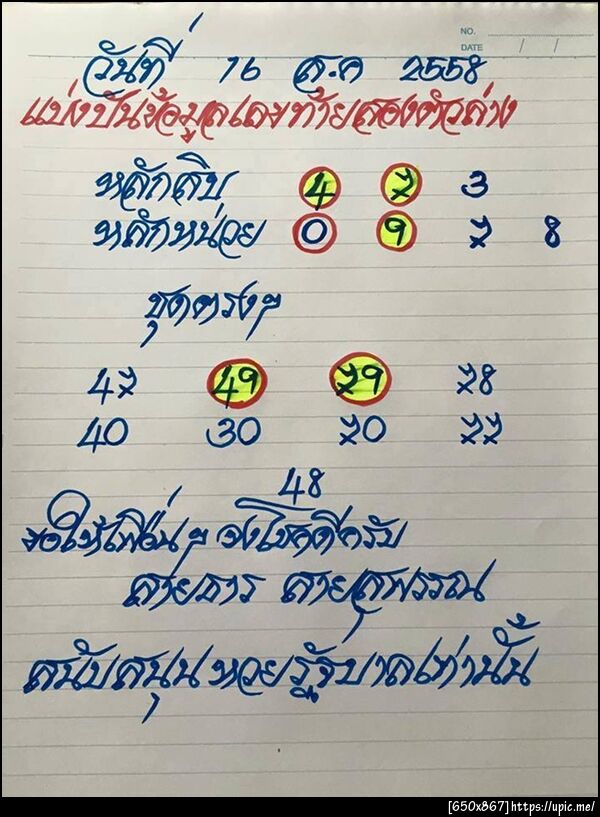 NO.
DATE / /
วันที่ 16 ต.ค 2558
แบ่งปันข้อมูลเลขท้ายสองตัวล่าง
หลักสิบ 4 7 3
หลักหน่วย 0 9 7 8
ชุดตรงๆ
47 49 79 78
40 30 70 77
48
ขอให้เพื่อนๆ จงโชคดีครับ
สายธาร สายสุพรรณ
สนับสนุนหวยรัฐบาลเท่านั้น
[650x867] https://upic.me/